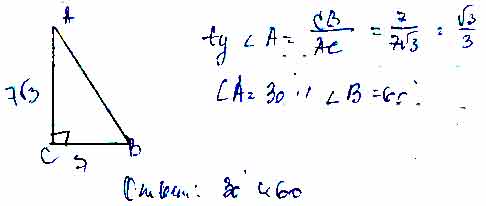 A
7√3
C
7
B
tg ∠A = CB/AC = 7/7√3 = √3/3
∠A = 30° ∠B = 60°
Ответ: 30° и 60